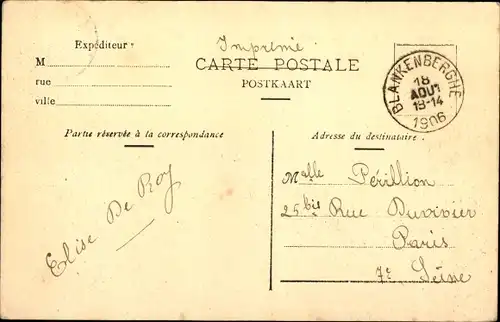 Expéditeur :
M
rue
ville
Imprimé
CARTE POSTALE
POSTKAART
BLANKENBERGHE
18
AOUT
13-14
1906
Partie réservée à la correspondance
Adresse du destinataire :
Elise De Roy
Malle Périllion
25bis Rue Duvivier
Paris
7e Seine